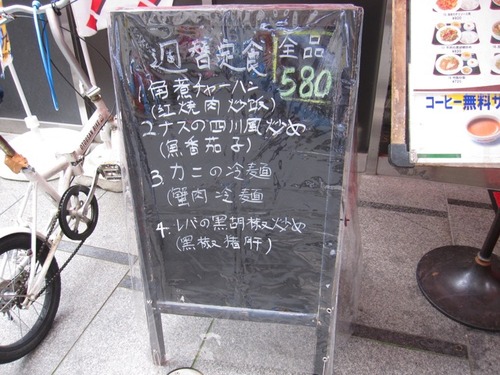 週替定食 全品
580
1.角煮チャーハン
(紅焼肉炒飯)
2.ナスの四川風炒め
(魚番茄子)
3.カニの冷麺
(蟹肉冷麺)
4.レバの黒胡椒炒め
(黒椒猪肝)
コーヒー無料サ